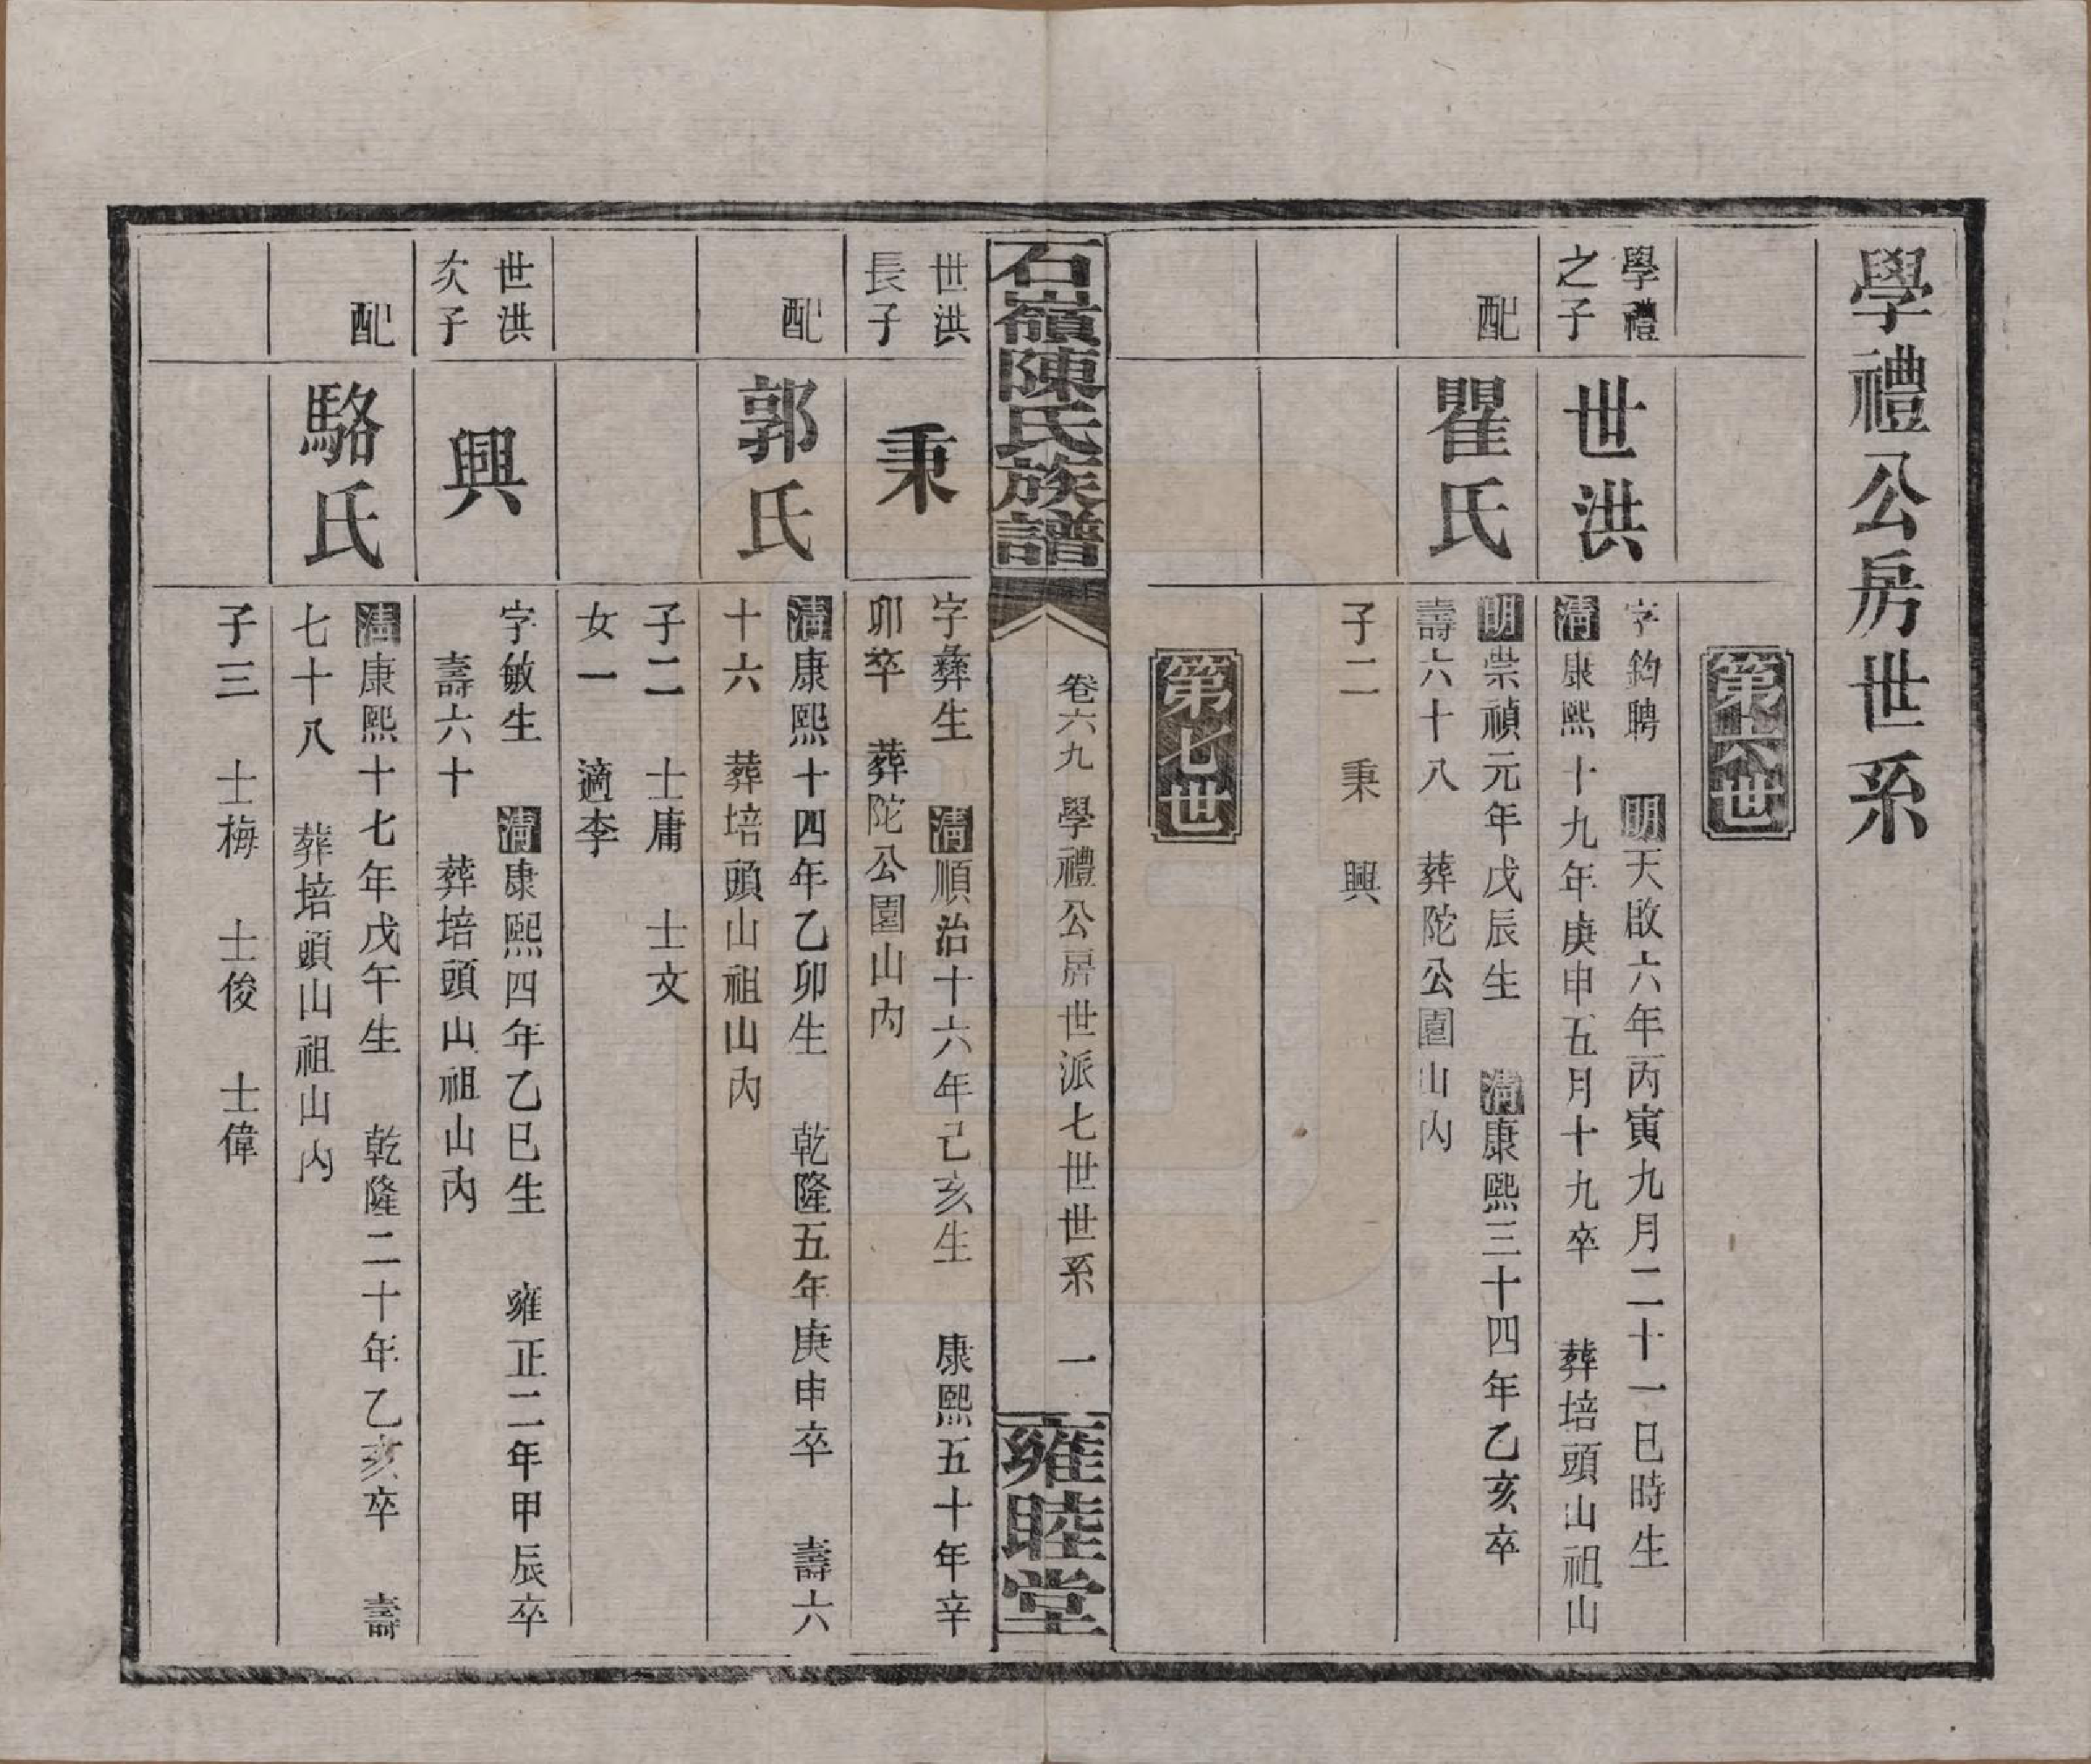 學禮公房世系
第六世
學禮
之子
世洪
字鈞聘　明天啟六年丙寅九月二十一巳時生
清康熙十九年庚申五月十九卒　葬培頭山祖山
配
瞿氏
明崇禎元年戊辰生　清康熙三十四年乙亥卒
壽六十八　葬陀公園山內
子二　秉　興
第七世
石嶺陳氏族譜
卷六九　學禮公房世派七世世系　一
雍睦堂
世洪
長子
秉
字彝生　清順治十六年己亥生　康熙五十年辛
卯卒　葬陀公園山內
配
郭氏
清康熙十四年乙卯生　乾隆五年庚申卒　壽六
十六　葬培頭山祖山內
子二　士庸　士文
女一　適李
世洪
次子
興
字敏生　清康熙四年乙巳生　雍正二年甲辰卒
壽六十　葬培頭山祖山內
配
駱氏
清康熙十七年戊午生　乾隆二十年乙亥卒　壽
七十八　葬培頭山祖山內
子三　士梅　士俊　士偉